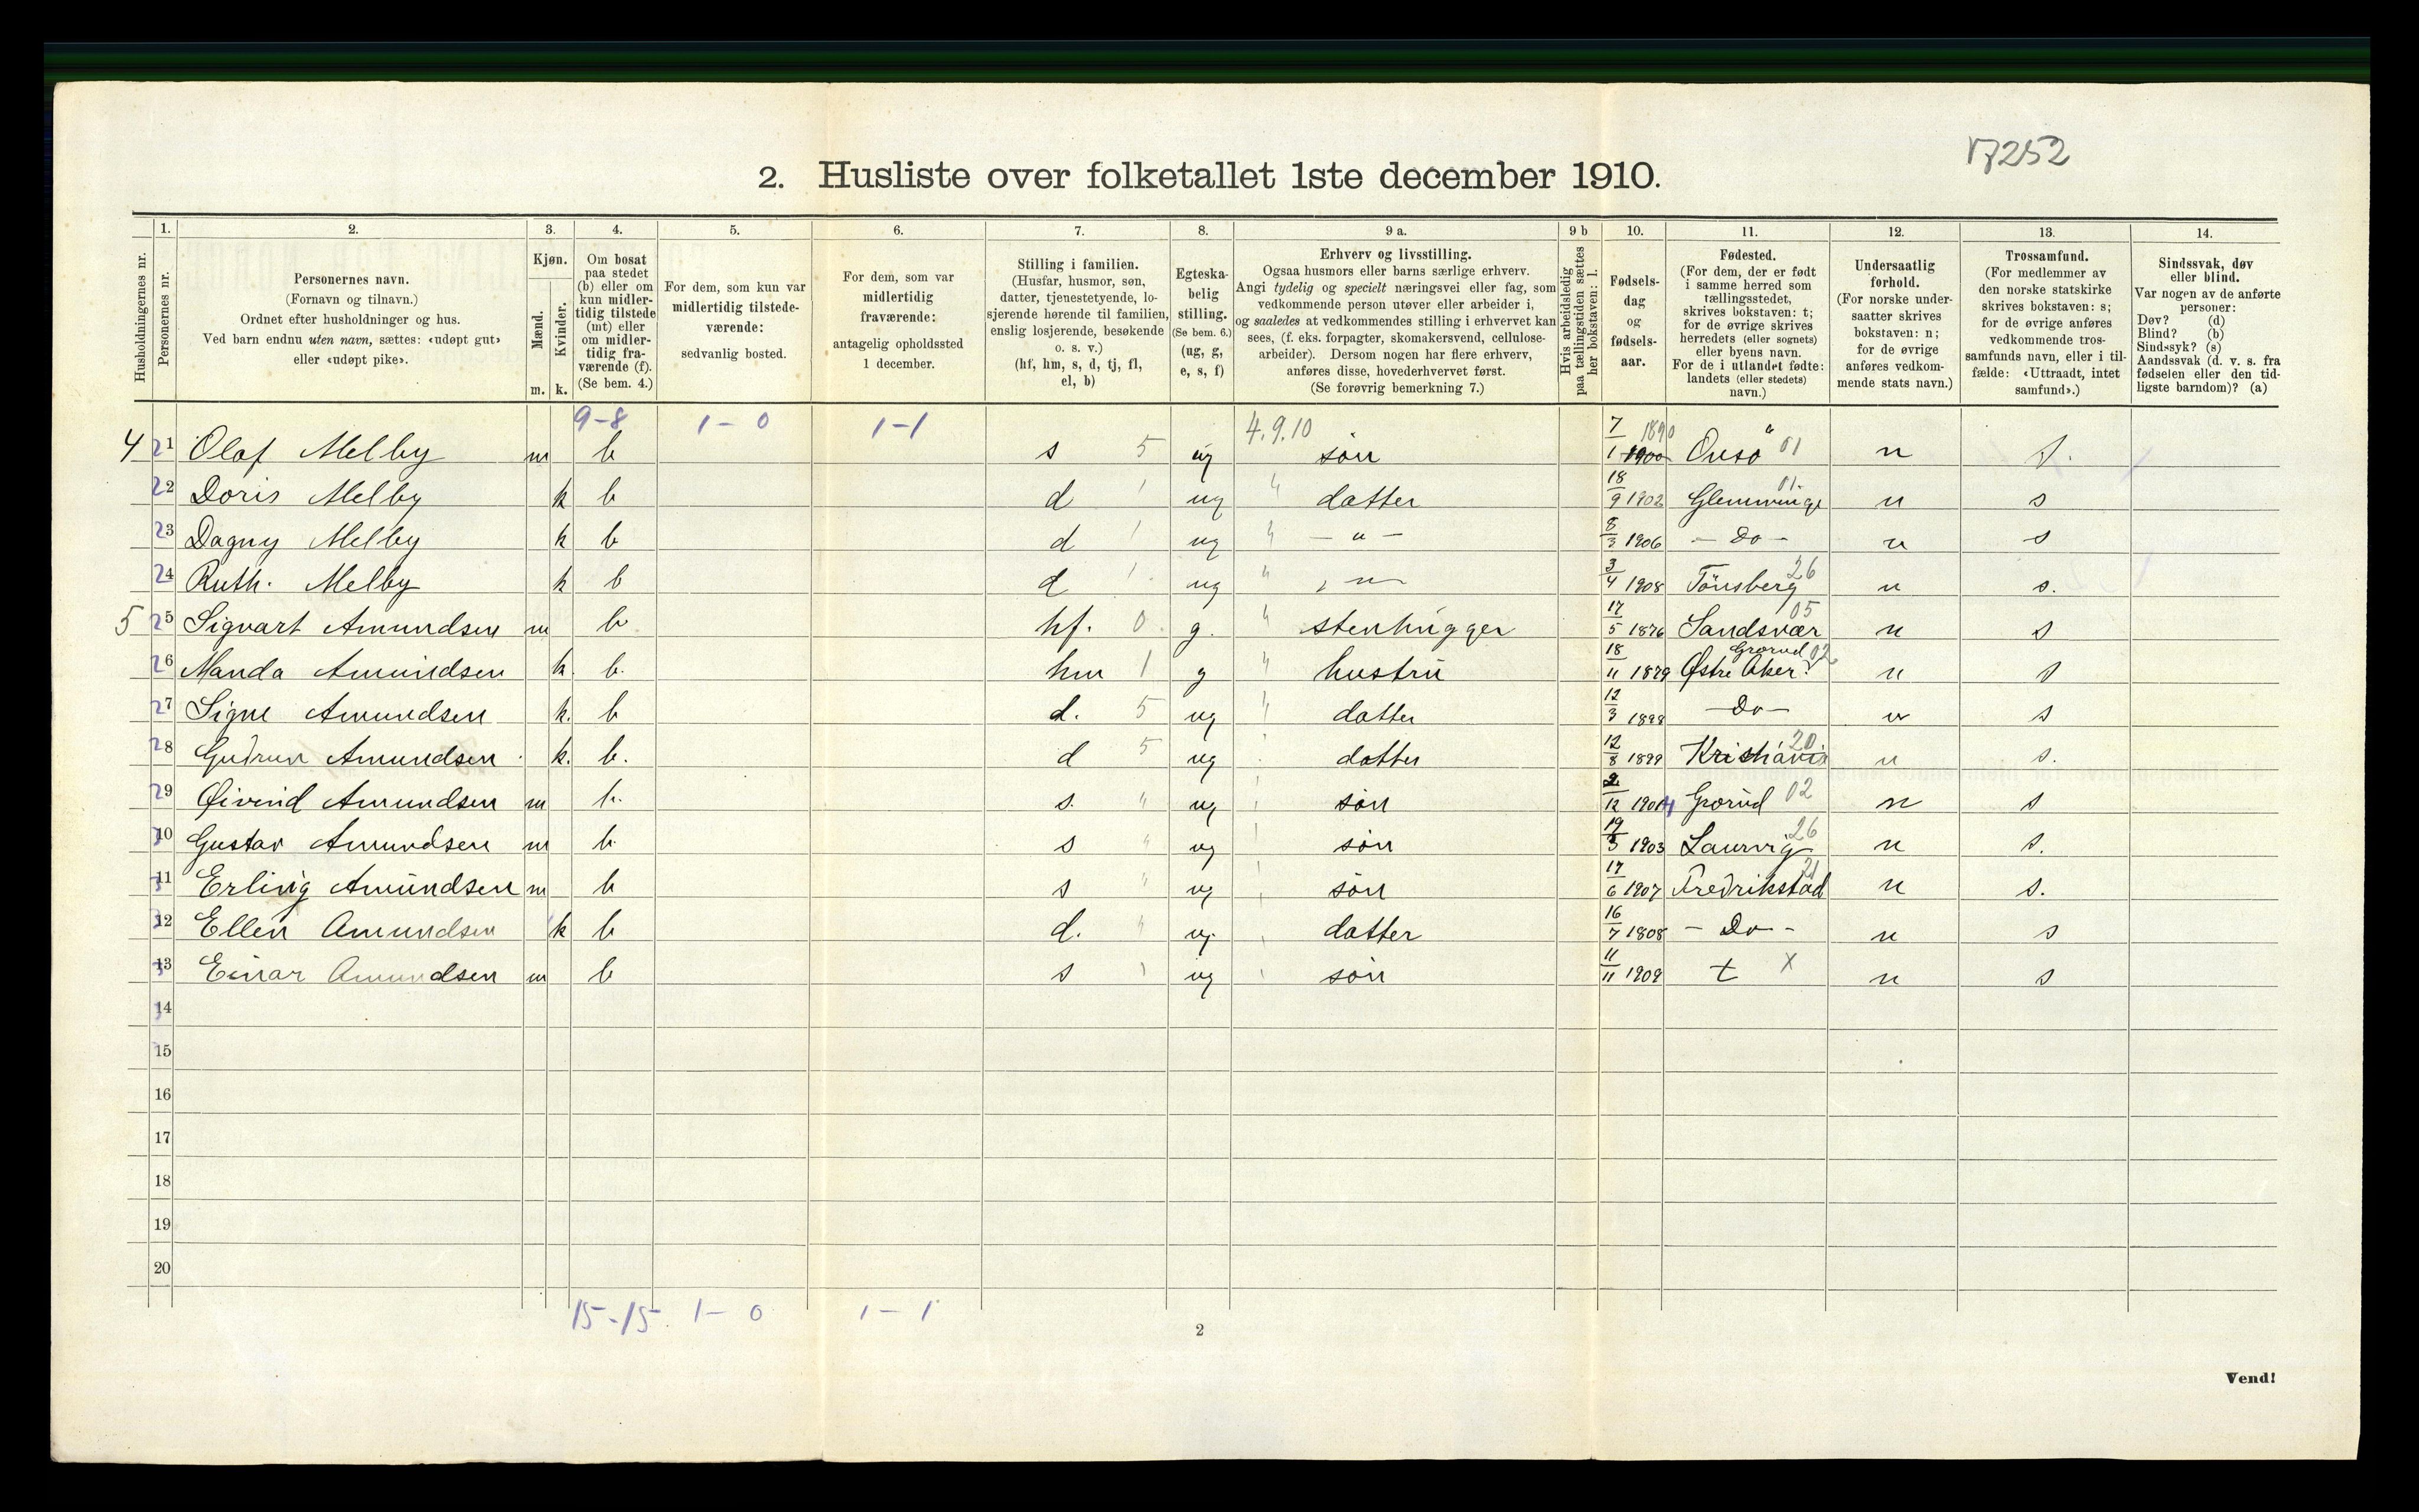 17252
2. Husliste over folketallet 1ste december 1910.
1. 2. 3. 4. 5. 6. 7. 8. 9 a. 9 b 10. 11. 12. 13. 14.
Husholdningernes nr.
Personernes nr.
Personernes navn.
(Fornavn og tilnavn.)
Ordnet efter husholdninger og hus.
Ved barn endnu uten navn, sættes: «udøpt gut»
eller «udøpt pike».
Kjøn.
Mænd.
Kvinder.
m. k.
Om bosat
paa stedet
(b) eller om
kun midler-
tidig tilstede
(mt) eller
om midler-
tidig fra-
værende (f).
(Se bem. 4.)
For dem, som kun var
midlertidig tilstede-
værende:
sedvanlig bosted.
For dem, som var
midlertidig
fraværende:
antagelig opholdssted
1 december.
Stilling i familien.
(Husfar, husmor, søn,
datter, tjenestetyende, lo-
sjerende hørende til familien,
enslig losjerende, besøkende
o. s. v.)
(hf, hm, s, d, tj, fl,
el, b)
Egteska-
belig
stilling.
(Se bem. 6.)
(ug, g,
e, s, f)
Erhverv og livsstilling.
Ogsaa husmors eller barns særlige erhverv.
Angi tydelig og specielt næringsvei eller fag, som
vedkommende person utøver eller arbeider i,
og saaledes at vedkommendes stilling i erhvervet kan
sees, (f. eks. forpagter, skomakersvend, cellulose-
arbeider). Dersom nogen har flere erhverv,
anføres disse, hovederhvervet først.
(Se forøvrig bemerkning 7.)
Hvis arbeidsledig
paa tællingstiden sættes
her bokstaven: l.
Fødsels-
dag
og
fødsels-
aar.
Fødested.
(For dem, der er født
i samme herred som
tællingsstedet,
skrives bokstaven: t;
for de øvrige skrives
herredets (eller sognets)
eller byens navn.
For de i utlandet fødte:
landets (eller stedets)
navn.)
Undersaatlig
forhold.
(For norske under-
saatter skrives
bokstaven: n;
for de øvrige
anføres vedkom-
mende stats navn.)
Trossamfund.
(For medlemmer av
den norske statskirke
skrives bokstaven: s;
for de øvrige anføres
vedkommende tros-
samfunds navn, eller i til-
fælde: «Uttraadt, intet
samfund».)
Sindssvak, døv
eller blind.
Var nogen av de anførte
personer:
Døv? (d)
Blind? (b)
Sindssyk? (s)
Aandssvak (d. v. s. fra
fødselen eller den tid-
ligste barndom)? (a)
9-8 1-0 1-1 4.9.10
4 21 Olaf Melby m b s 5 ug søn 7/1 1900 1890 Onsø 01 n s.
22 Doris Melby k b d 1 ug " datter 18/9 1902 Glemminge 01 n s
23 Dagny Melby k b d 1 ug " - " - 8/3 1906 - Do - n s
24 Ruth. Melby k b d 1 ug " - " - 3/4 1908 Tönsberg 26 n s.
5 25 Sigvart Amundsen m b hf. 0 g. " stenhugger 17/5 1876 Sandsvær 05 n s
26 Manda Amundsen k. b. hm 1 g " hustru 18/11 1879 Østre Aker Grorud 02 n s
27 Signe Amundsen k. b d. 5 ug " datter 12/3 1898 - Do - n s
28 Gudrun Amundsen k. b. d 5 ug datter 12/8 1899 Kristiania 20 n s.
29 Øivind Amundsen m b. s. " ug søn 2/12 1901 Grorud 02 n s
10 Gustav Amundsen m b s " ug søn 19/3 1903 Laurvig 26 n s.
11 Erling Amundsen m b s " ug søn 17/6 1907 Fredrikstad 21 n s.
12 Ellen Amundsen k b d. " ug. datter 16/7 1808 - Do - n s
13 Einar Amundsen m b s ug søn 11/11 1909 t X n s
14
15
16
17
18
19
20
15-15. 1-0 1-1
2
Vend!